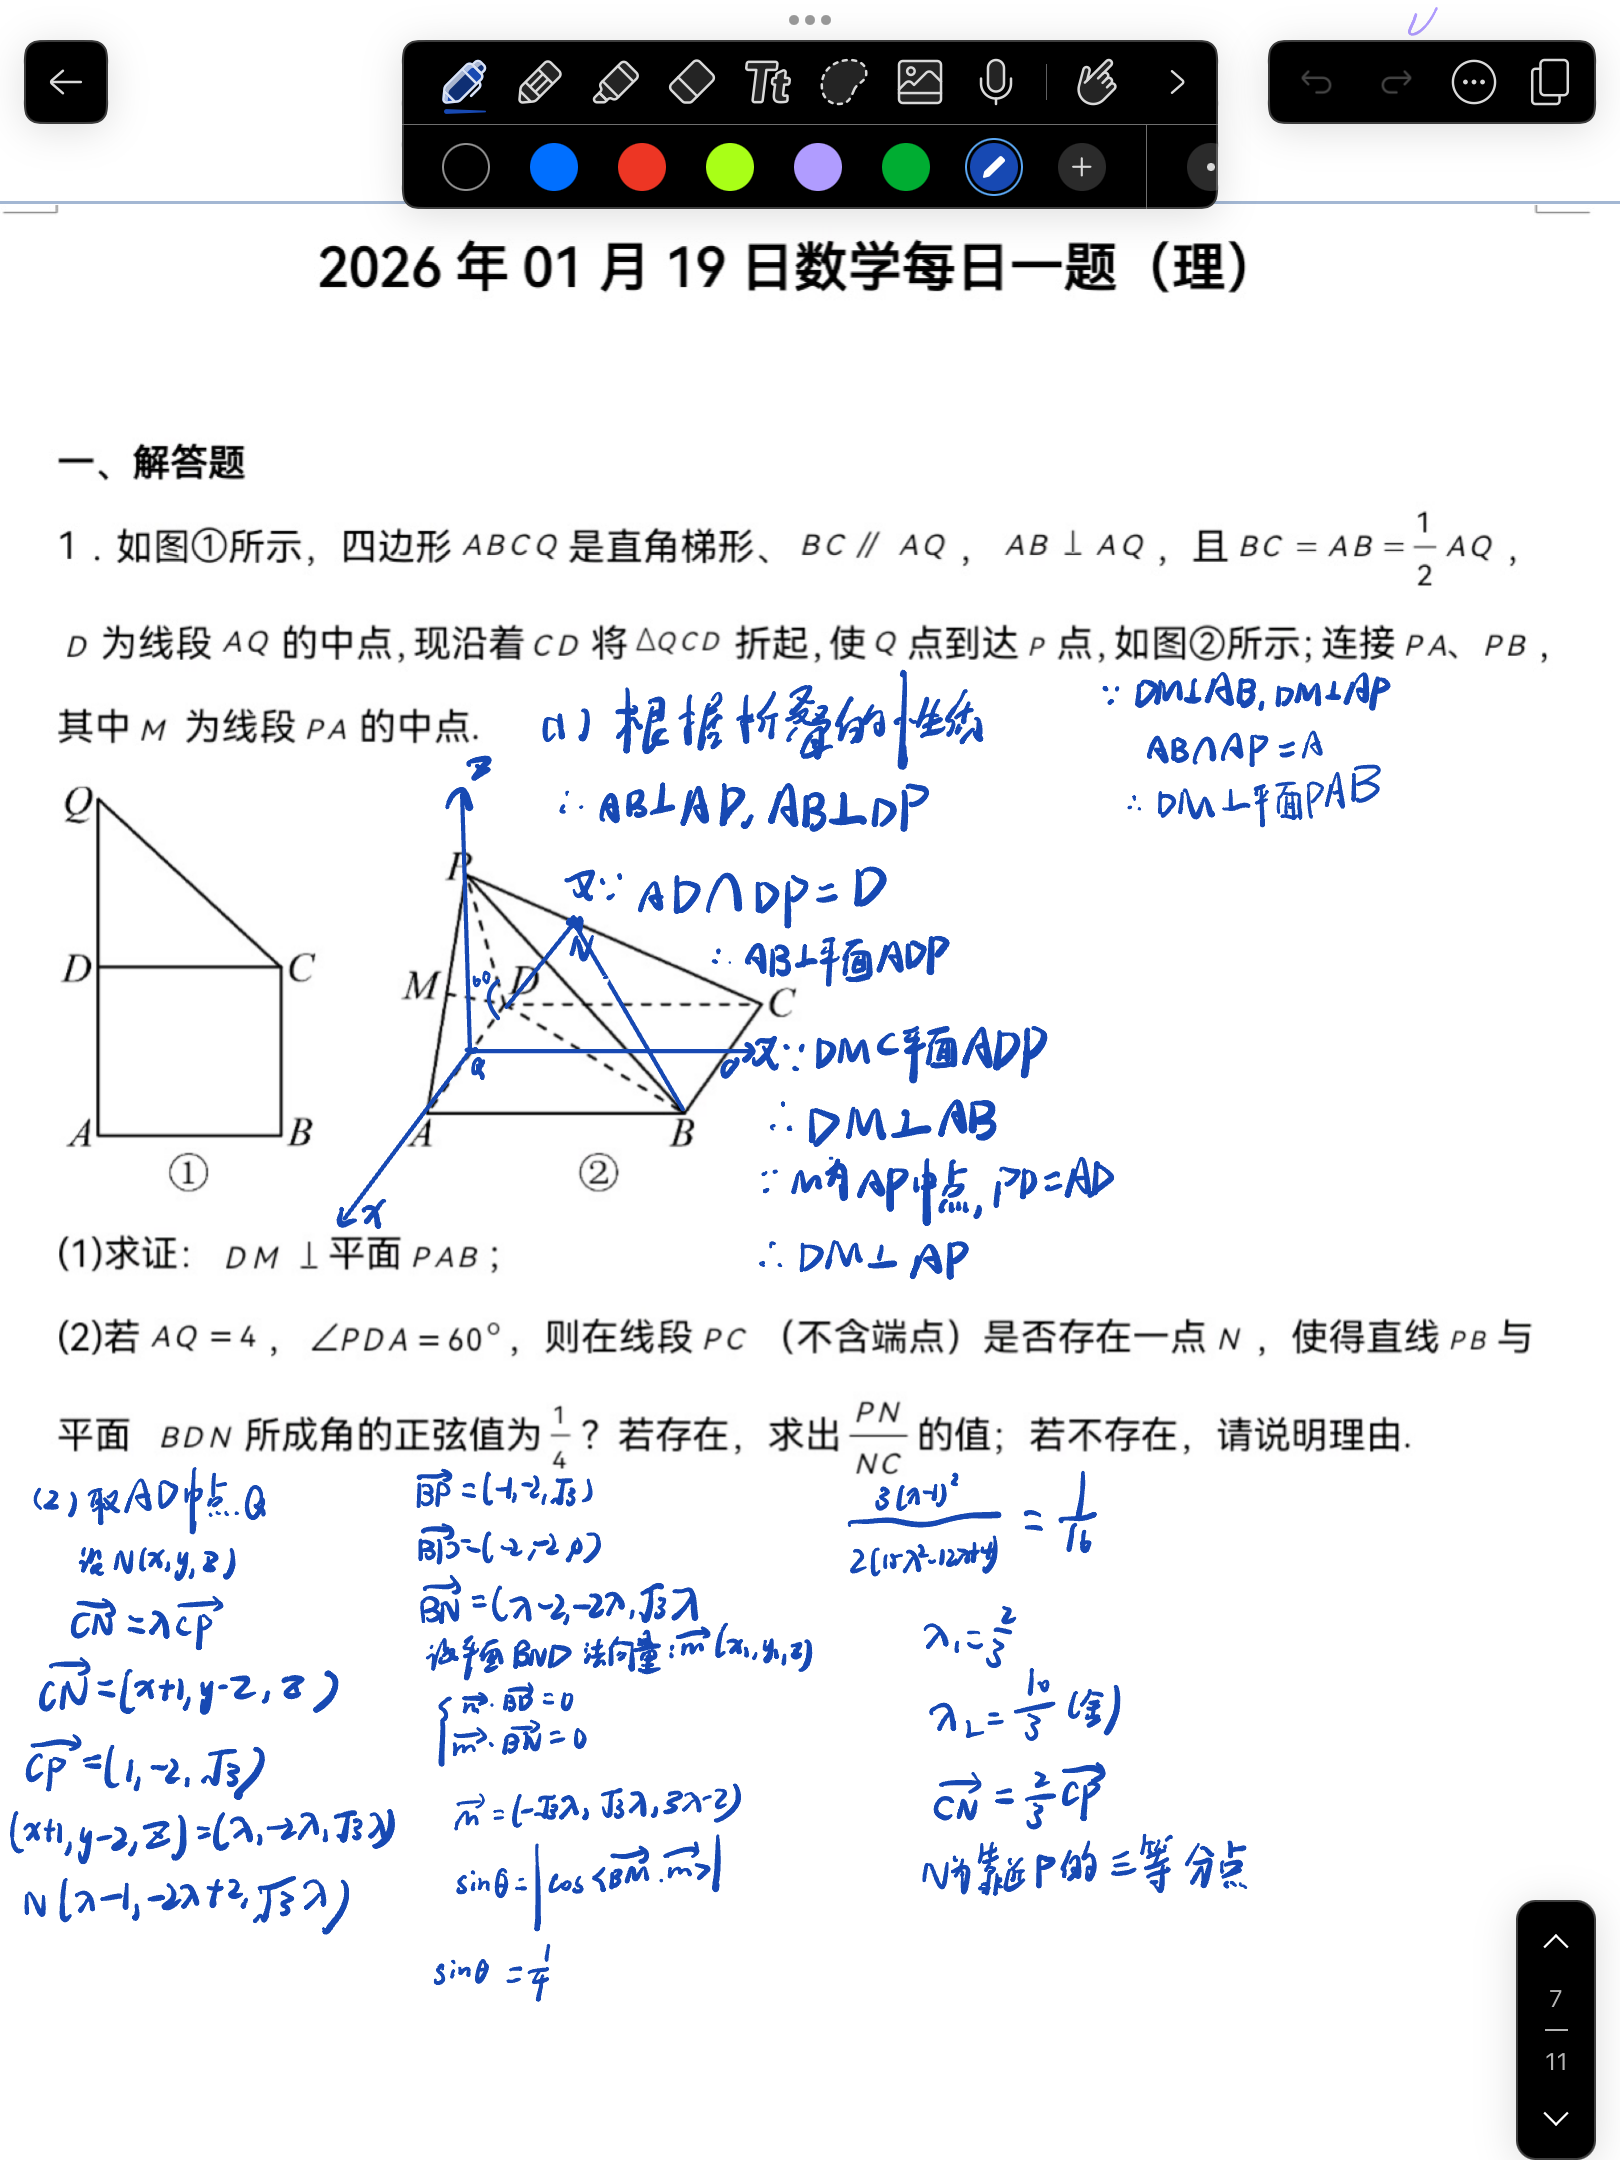 Tt
2026 年 01 月 19 日数学每日一题（理）
一、解答题
1．如图①所示，四边形 ABCQ 是直角梯形、 BC // AQ ， AB ⊥ AQ ，且 BC = AB = 1/2 AQ ，
D 为线段 AQ 的中点,现沿着 CD 将 △QCD 折起,使 Q 点到达 P 点,如图②所示; 连接 PA、PB ,
其中 M 为线段 PA 的中点.
(1) 根据折叠的性质
∴ AB⊥AD, AB⊥DP
又∵ AD∩DP = D
∴ AB⊥平面ADP
又∵ DM⊂平面ADP
∴ DM⊥AB
∵ M为AP中点, PD=AD
∴ DM⊥AP
∵ DM⊥AB, DM⊥AP
AB∩AP = A
∴ DM⊥平面PAB
Q
D
C
A
B
①
z
P
M
60°
D
N
C
Q
A
B
x
②
(1)求证： DM ⊥平面 PAB ；
(2)若 AQ = 4 ， ∠PDA = 60° ，则在线段 PC （不含端点）是否存在一点 N ，使得直线 PB 与
平面 BDN 所成角的正弦值为 1/4 ？若存在，求出 PN/NC 的值；若不存在，请说明理由.
(2) 取AD中点.Q
设 N(x, y, z)
CN = λCP
CN = (x+1, y-2, z)
CP = (1, -2, √3)
(x+1, y-2, z) = (λ, -2λ, √3λ)
N(λ-1, -2λ+2, √3λ)
BP = (-1, -2, √3)
BD = (-2, -2, 0)
BN = (λ-2, -2λ, √3λ
设平面BND法向量: m(x, y, z)
m · BD = 0
m · BN = 0
m = (-√3λ, √3λ, 3λ-2)
sinθ = |cos<BM · m>|
sinθ = 1/4
3(λ-1)²/2(15λ²-12λ+4) = 1/16
λ₁ = 2/3
λ₂ = 10/3 (舍)
CN = 2/3 CP
N为靠近P的三等分点
7
11